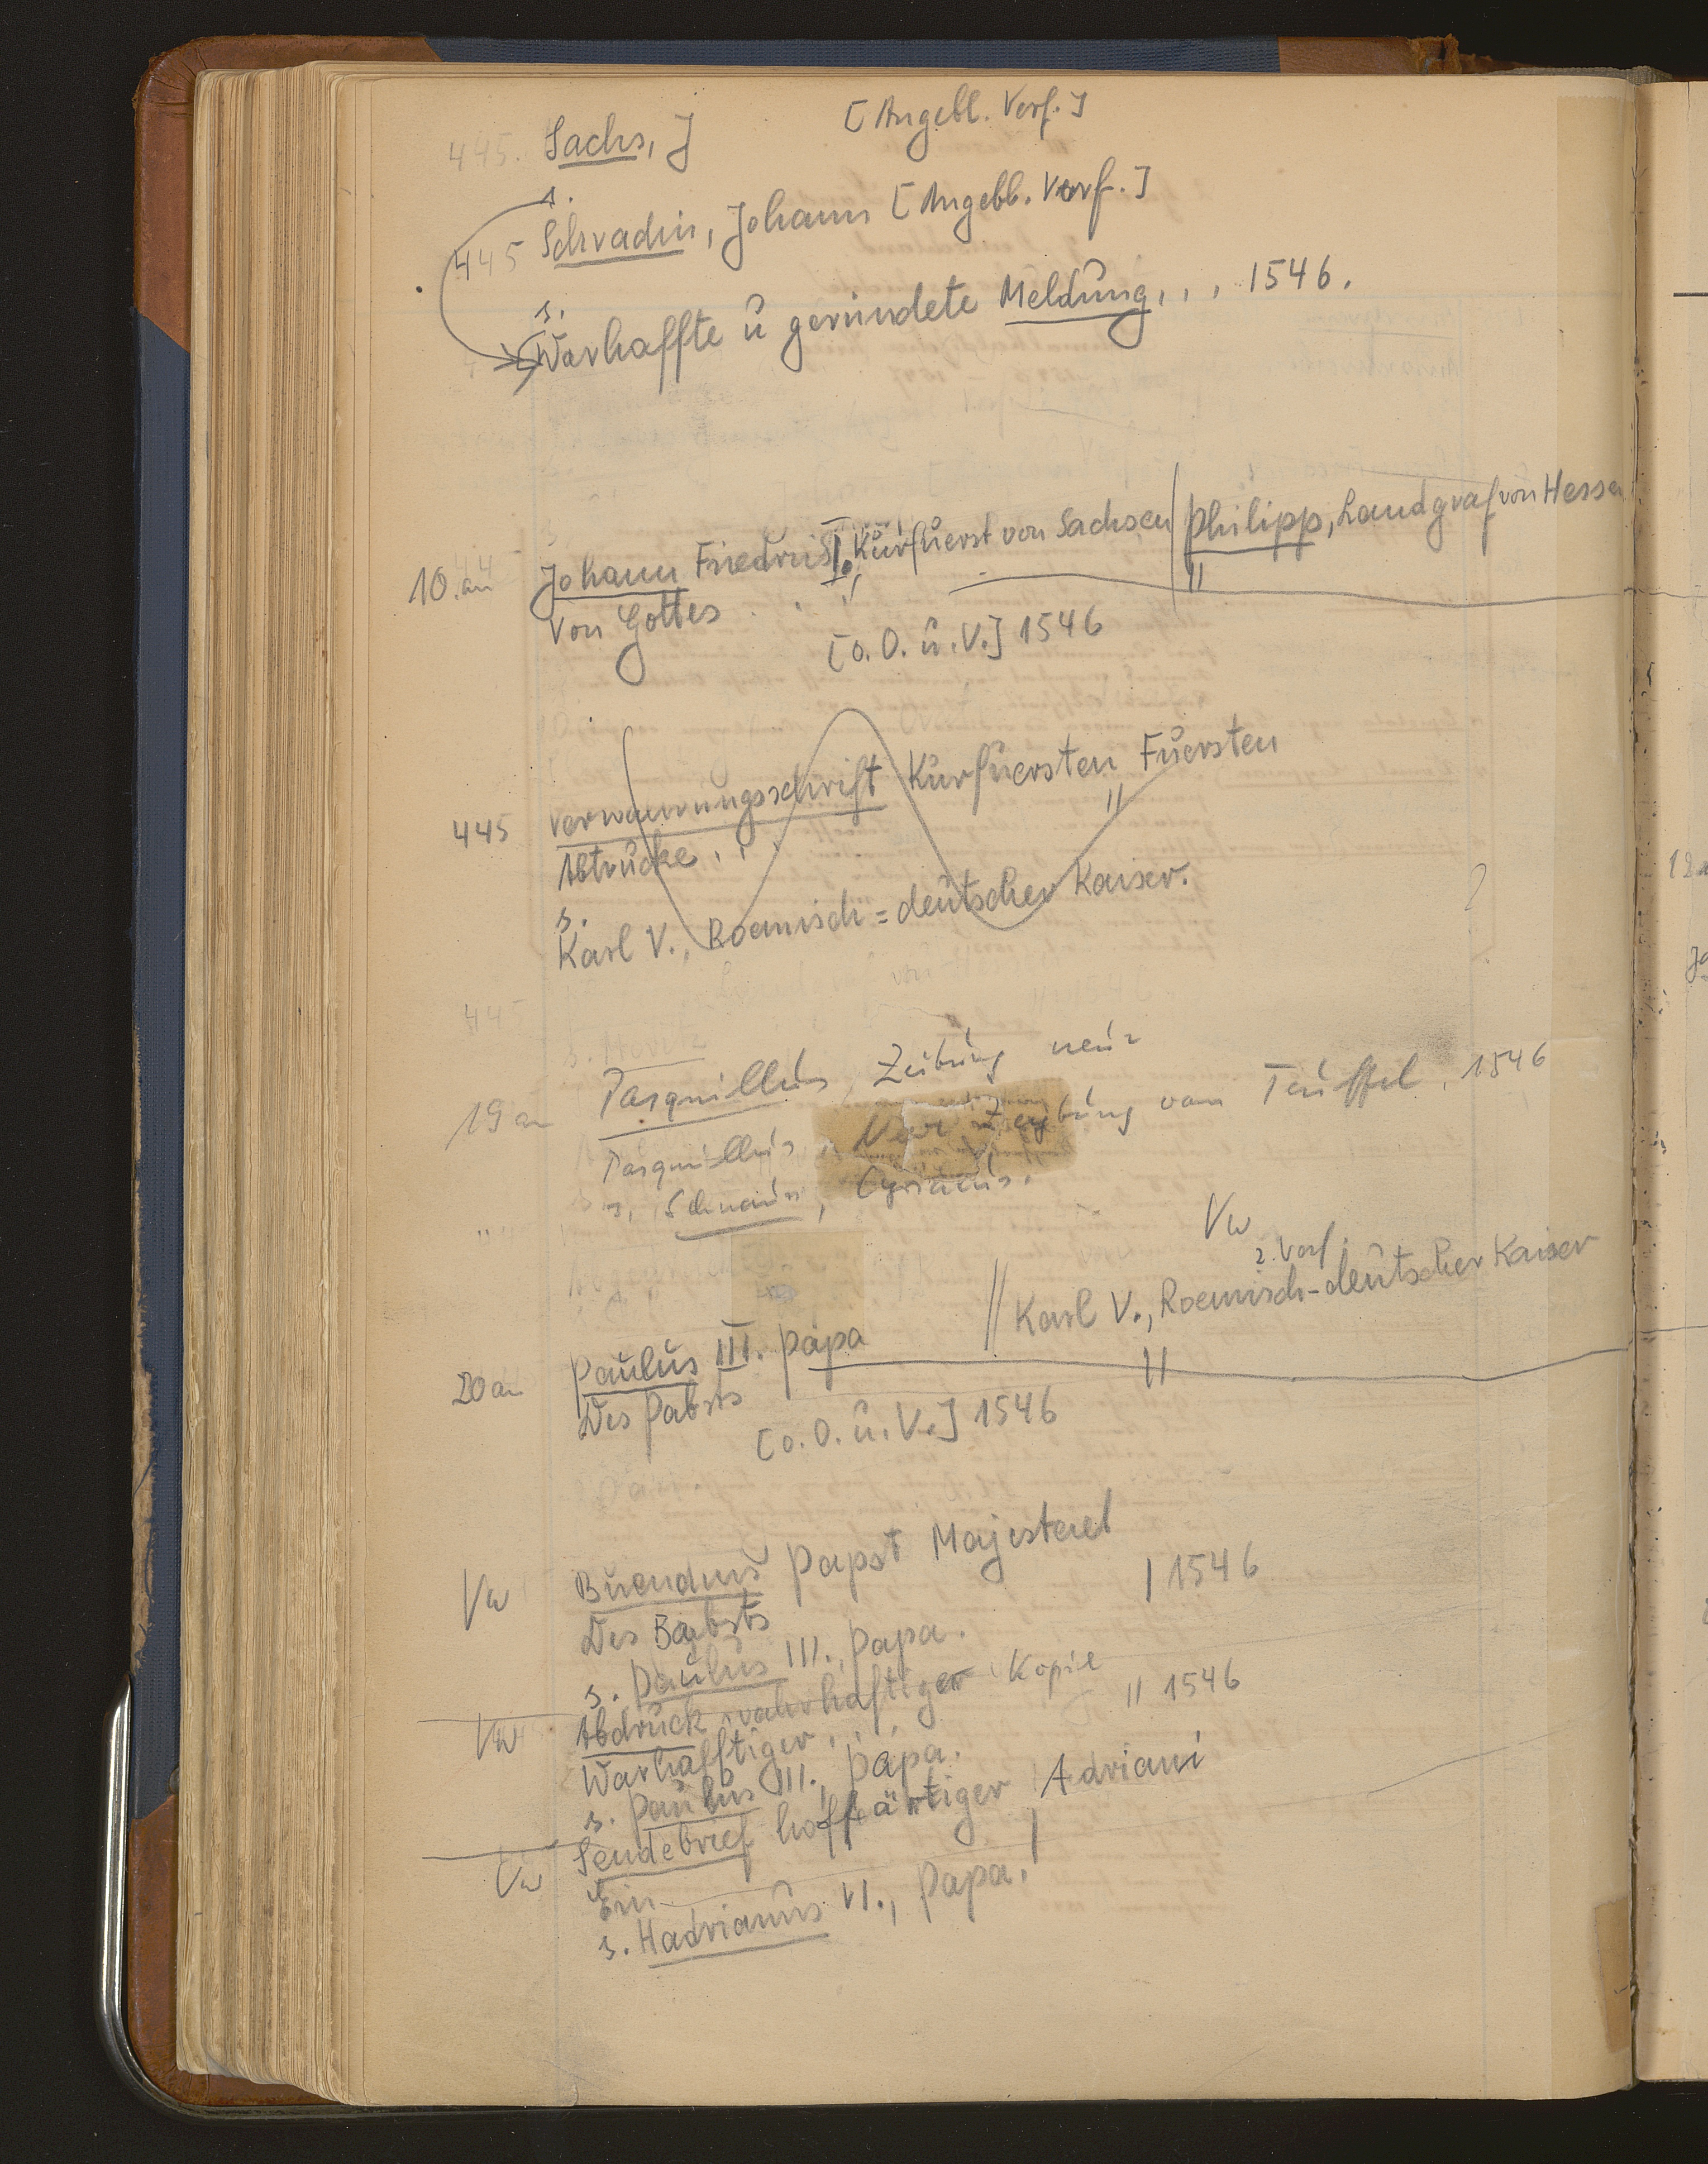 445. Sachs, J [Angebl. Verf.]
s.
445 Schradin, Johann [Angebl. Verf.]
s.
Warhaffte u geründete Meldung, , , 1546.
10.an Johann Friedrich I., Kurfuerst von Sachsen / Philipp, Landgraf von Hessen
Von Gottes . . .
[o. O. u. V.] 1546
445 Verwarnungsschrift Kurfuersten Fuersten
Abtrucke . . .
s.
Karl V., Roemisch=deutscher Kaiser.
445
19 an Pasquillus, Zeitung neue
Pasquillus, Neue Zeytung vom Teuffel, 1546
s. Schnauss, Cyriacus.
Vw
2. Verf.
20 an Paulus III. Papa // Karl V., Roemisch-deutscher Kaiser
Des Pabsts
[o. O. u. V.] 1546
Vw Buendnus Papst Majestaet
Des Babsts | 1546
s. Paulus III., Papa.
Vw Abdruck wahrhaftiger Kopie
Warhafftiger . . . // 1546
s. Paulus III., Papa.
Vw Sendebrief hoffärtiger Adriani
Ein
s. Hadrianus VI., Papa.